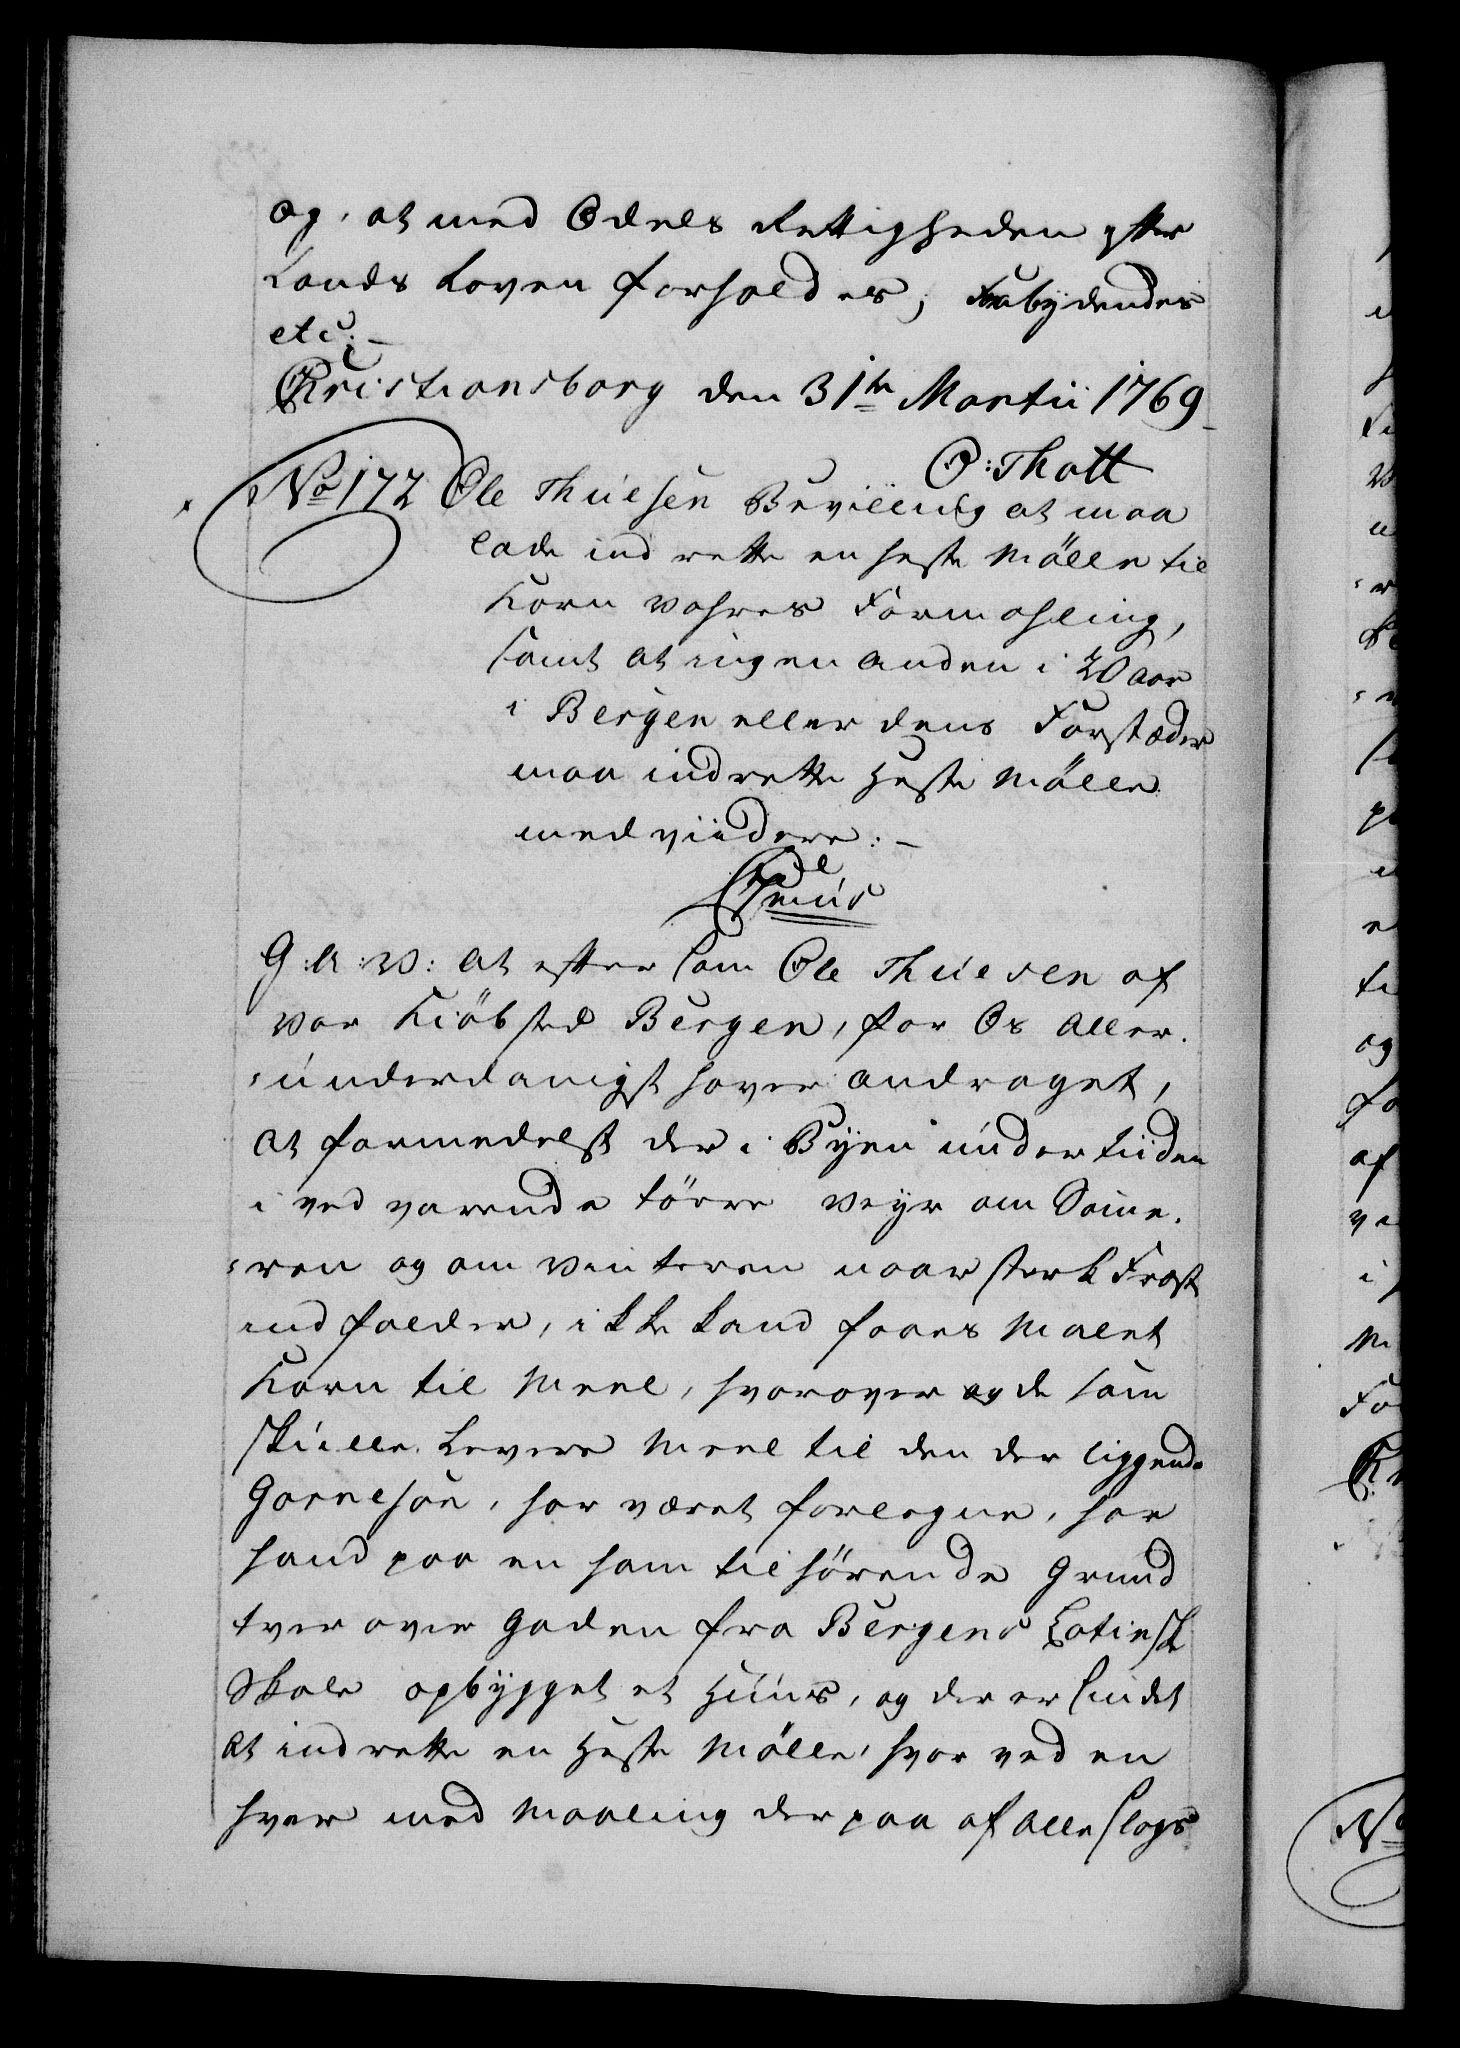 og, at med Odels Rettigheden efter
Lands Loven forholdes; Forbydendes
etc: –
Christiansborg den 31te Martii 1769
O: Thott
No 172 Ole Thuesen Bevilling at maa
lade ind rette en heste Mölle til
Korn vahres Formahling,
samt at ingen anden i 20 aar
i Bergen eller dens Forstæder
maa indrette Heste Mölle
med viidere: –
G: A: V: at efter som Ole Thuesen af
vor Kiöbsted Bergen, for Os aller-
underdanigst haver andraget,
at formedelst der i Byen undertiiden
i ved varende törre veyr om Somme-
ren og om vinteren naar sterk Frost
ind falder, ikke kand faaes malet
Korn til Meel, hvorover og de som
skulle levere Meel til den der liggende
Garnison, har været forlegne, har
hand paa en ham tilhörende Grund
tver over Gaden fra Bergens Latinsk
Skole opbygget et Huus, og der er sindet
at indrette en Heste Mölle, hvor ved en
hver med Maaling der paa af alle slags